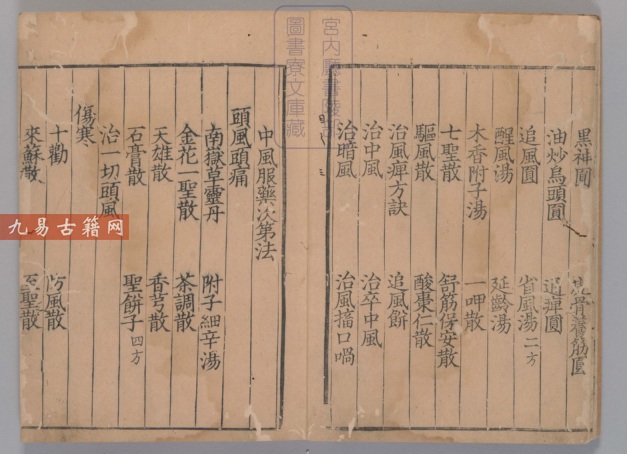 黒神圓
換骨舊筋圓
油炒烏頭圓
追痺圓
追風圓
省風湯二方
醒風湯
延齡湯
木香附子湯
一呷散
七聖散
舒筋保安散
驅風散
酸棗仁散
治風痺方訣
追風餅
治中風
治卒中風
治暗風
治風搐口喎
中風服藥次第法
頭風頭痛
南嶽草靈丹
附子細辛湯
金花一聖散
茶調散
天雄散
香芎散
石膏散
聖餅子四方
治一切頭風
傷寒
十勸
防風散
來蘇散
至聖散
宮内廳書陵部
圖書寮文庫藏
九易古籍网